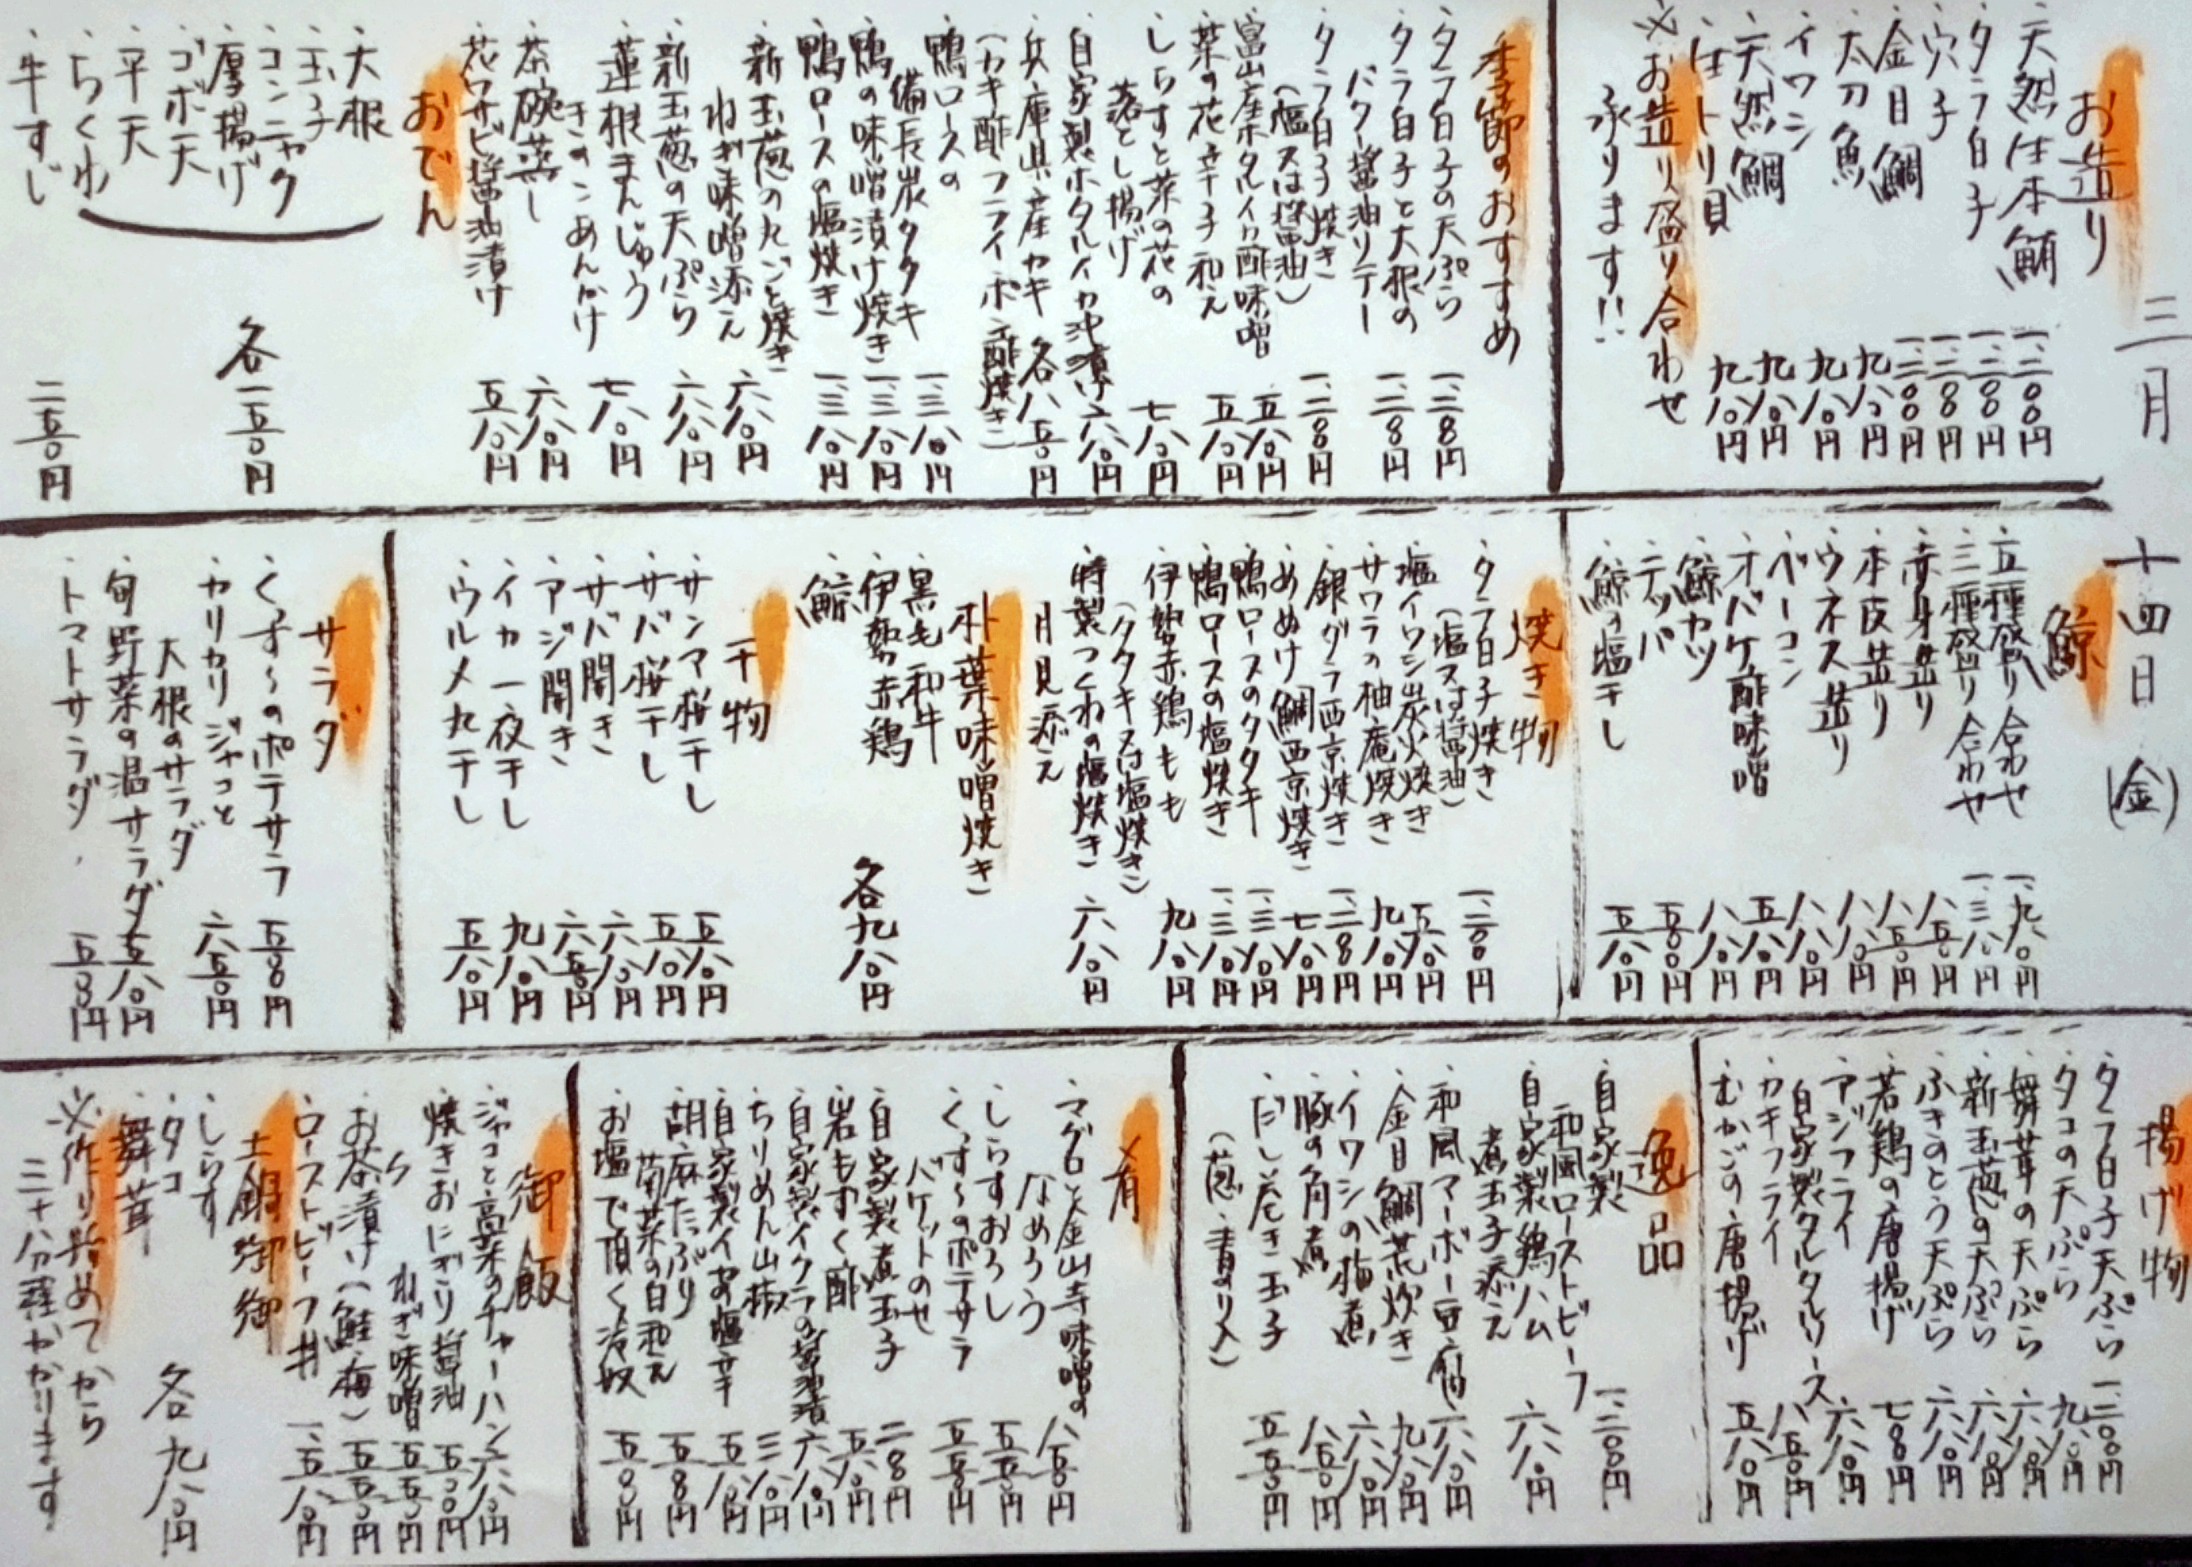 三月 十四日 (金)
お造り
・天然生本鮪 一、二〇〇円
・タラ白子 一、二〇〇円
・穴子
・金目鯛 一、二〇〇円
・太刀魚 九八〇円
・イワシ 九八〇円
・天然鯛 九八〇円
・生トリ貝 九八〇円
※お造り盛り合わせ
承ります!!
季節のおすすめ
・タラ白子の天ぷら
・タラ白子と大根の
バター醤油ソテー
・タラ白子焼き
(塩又は醤油)
・富山産ホタルイカ酢味噌 五八〇円
・菜の花辛子和え 五八〇円
・しらすと菜の花の
落とし揚げ 七八〇円
・自家製ホタルイカ沖漬け 六八〇円
・兵庫県産カキ 各八五〇円
(カキ酢・フライ・ポン酢焼き)
・鴨ロースの
備長炭タタキ 一、三八〇円
・鴨の味噌漬け焼き 一、三八〇円
・鴨ロースの塩焼き 一、三八〇円
・新玉葱の丸ごと焼き
ねぎ味噌添え 六八〇円
・新玉葱の天ぷら 六八〇円
・蓮根まんじゅう
きのこあんかけ 七八〇円
・茶碗蒸し 六八〇円
・花ワサビ醤油漬け 五八〇円
おでん
・大根
・玉子
・コンニャク
・厚揚げ
・ゴボ天
・平天
・ちくわ
各一五〇円
・牛すじ 二五〇円
鯨
・五種盛り合わせ 一、九八〇円
・三種盛り合わせ 一、三八〇円
・赤身造り 八五〇円
・本皮造り 八五〇円
・ウネス造り 八八〇円
・ベーコン 八八〇円
・オバケ酢味噌 五八〇円
・鯨カツ 八八〇円
・テッパ 五〇〇円
・鯨の塩干し 五八〇円
焼き物
・タラ白子焼き
(塩又は醤油) 一、二〇〇円
・塩イワシ炭火焼き 五八〇円
・サワラの柚庵焼き 九八〇円
・銀ダラ西京焼き
・あめけ鯛西京焼き 七八〇円
・鴨ロースのタタキ 一、三八〇円
・鴨ロースの塩焼き 一、三八〇円
・伊勢赤鶏もも
(タタキ又は塩焼き) 九八〇円
・特製つくねの塩焼き
月見添え 六八〇円
朴葉味噌焼き
・黒毛和牛
・伊勢赤鶏
・鯨
各九八〇円
干物
・サンマ桜干し 五八〇円
・サバ桜干し 五八〇円
・サバ開き 六八〇円
・アジ開き 六五〇円
・イカ一夜干し 九八〇円
・ウルメ丸干し 五八〇円
サラダ
・くっす〜のポテサラ 五五〇円
・カリカリジャコと
大根のサラダ 六五〇円
・旬野菜の温サラダ 五八〇円
・トマトサラダ
揚げ物
・タラ白子天ぷら 一、二〇〇円
・タコの天ぷら 九八〇円
・舞茸の天ぷら 六八〇円
・新玉葱の天ぷら 六八〇円
・ふきのとう天ぷら 六八〇円
・若鶏の唐揚げ
・アジフライ
自家製タルタルソース 六八〇円
・カキフライ 八五〇円
・むかごの唐揚げ 五八〇円
逸品
・自家製
和風ローストビーフ 一、二〇〇円
・自家製鶏ハム
煮玉子添え 六八〇円
・和風マーボー豆腐 六八〇円
・金目鯛荒炊き 九八〇円
・イワシの梅煮 六八〇円
・豚の角煮 八五〇円
・だし巻き玉子
(葱・青のり入) 五五〇円
肴
・マグロと金山寺味噌の
なめろう 八五〇円
・しらすおろし 五五〇円
・くっす〜のポテサラ
バケットのせ 五五〇円
・自家製煮玉子
・岩もずく酢 五八〇円
・自家製イクラの醤油漬 六八〇円
・ちりめん山椒 三八〇円
・自家製イカ塩辛 五八〇円
・胡麻たっぷり
菊菜の白和え
・お塩で頂く冷奴
御飯
・ジャコと高菜のチャーハン 六八〇円
・焼きおにぎり醤油 五五〇円
・〃 ねぎ味噌 五五〇円
・お茶漬け(鮭・梅) 五五〇円
・ローストビーフ丼 一、五八〇円
土鍋御飯
・しらす
・タコ
・舞茸
各九八〇円
※作り始めてから
三十分程かかります